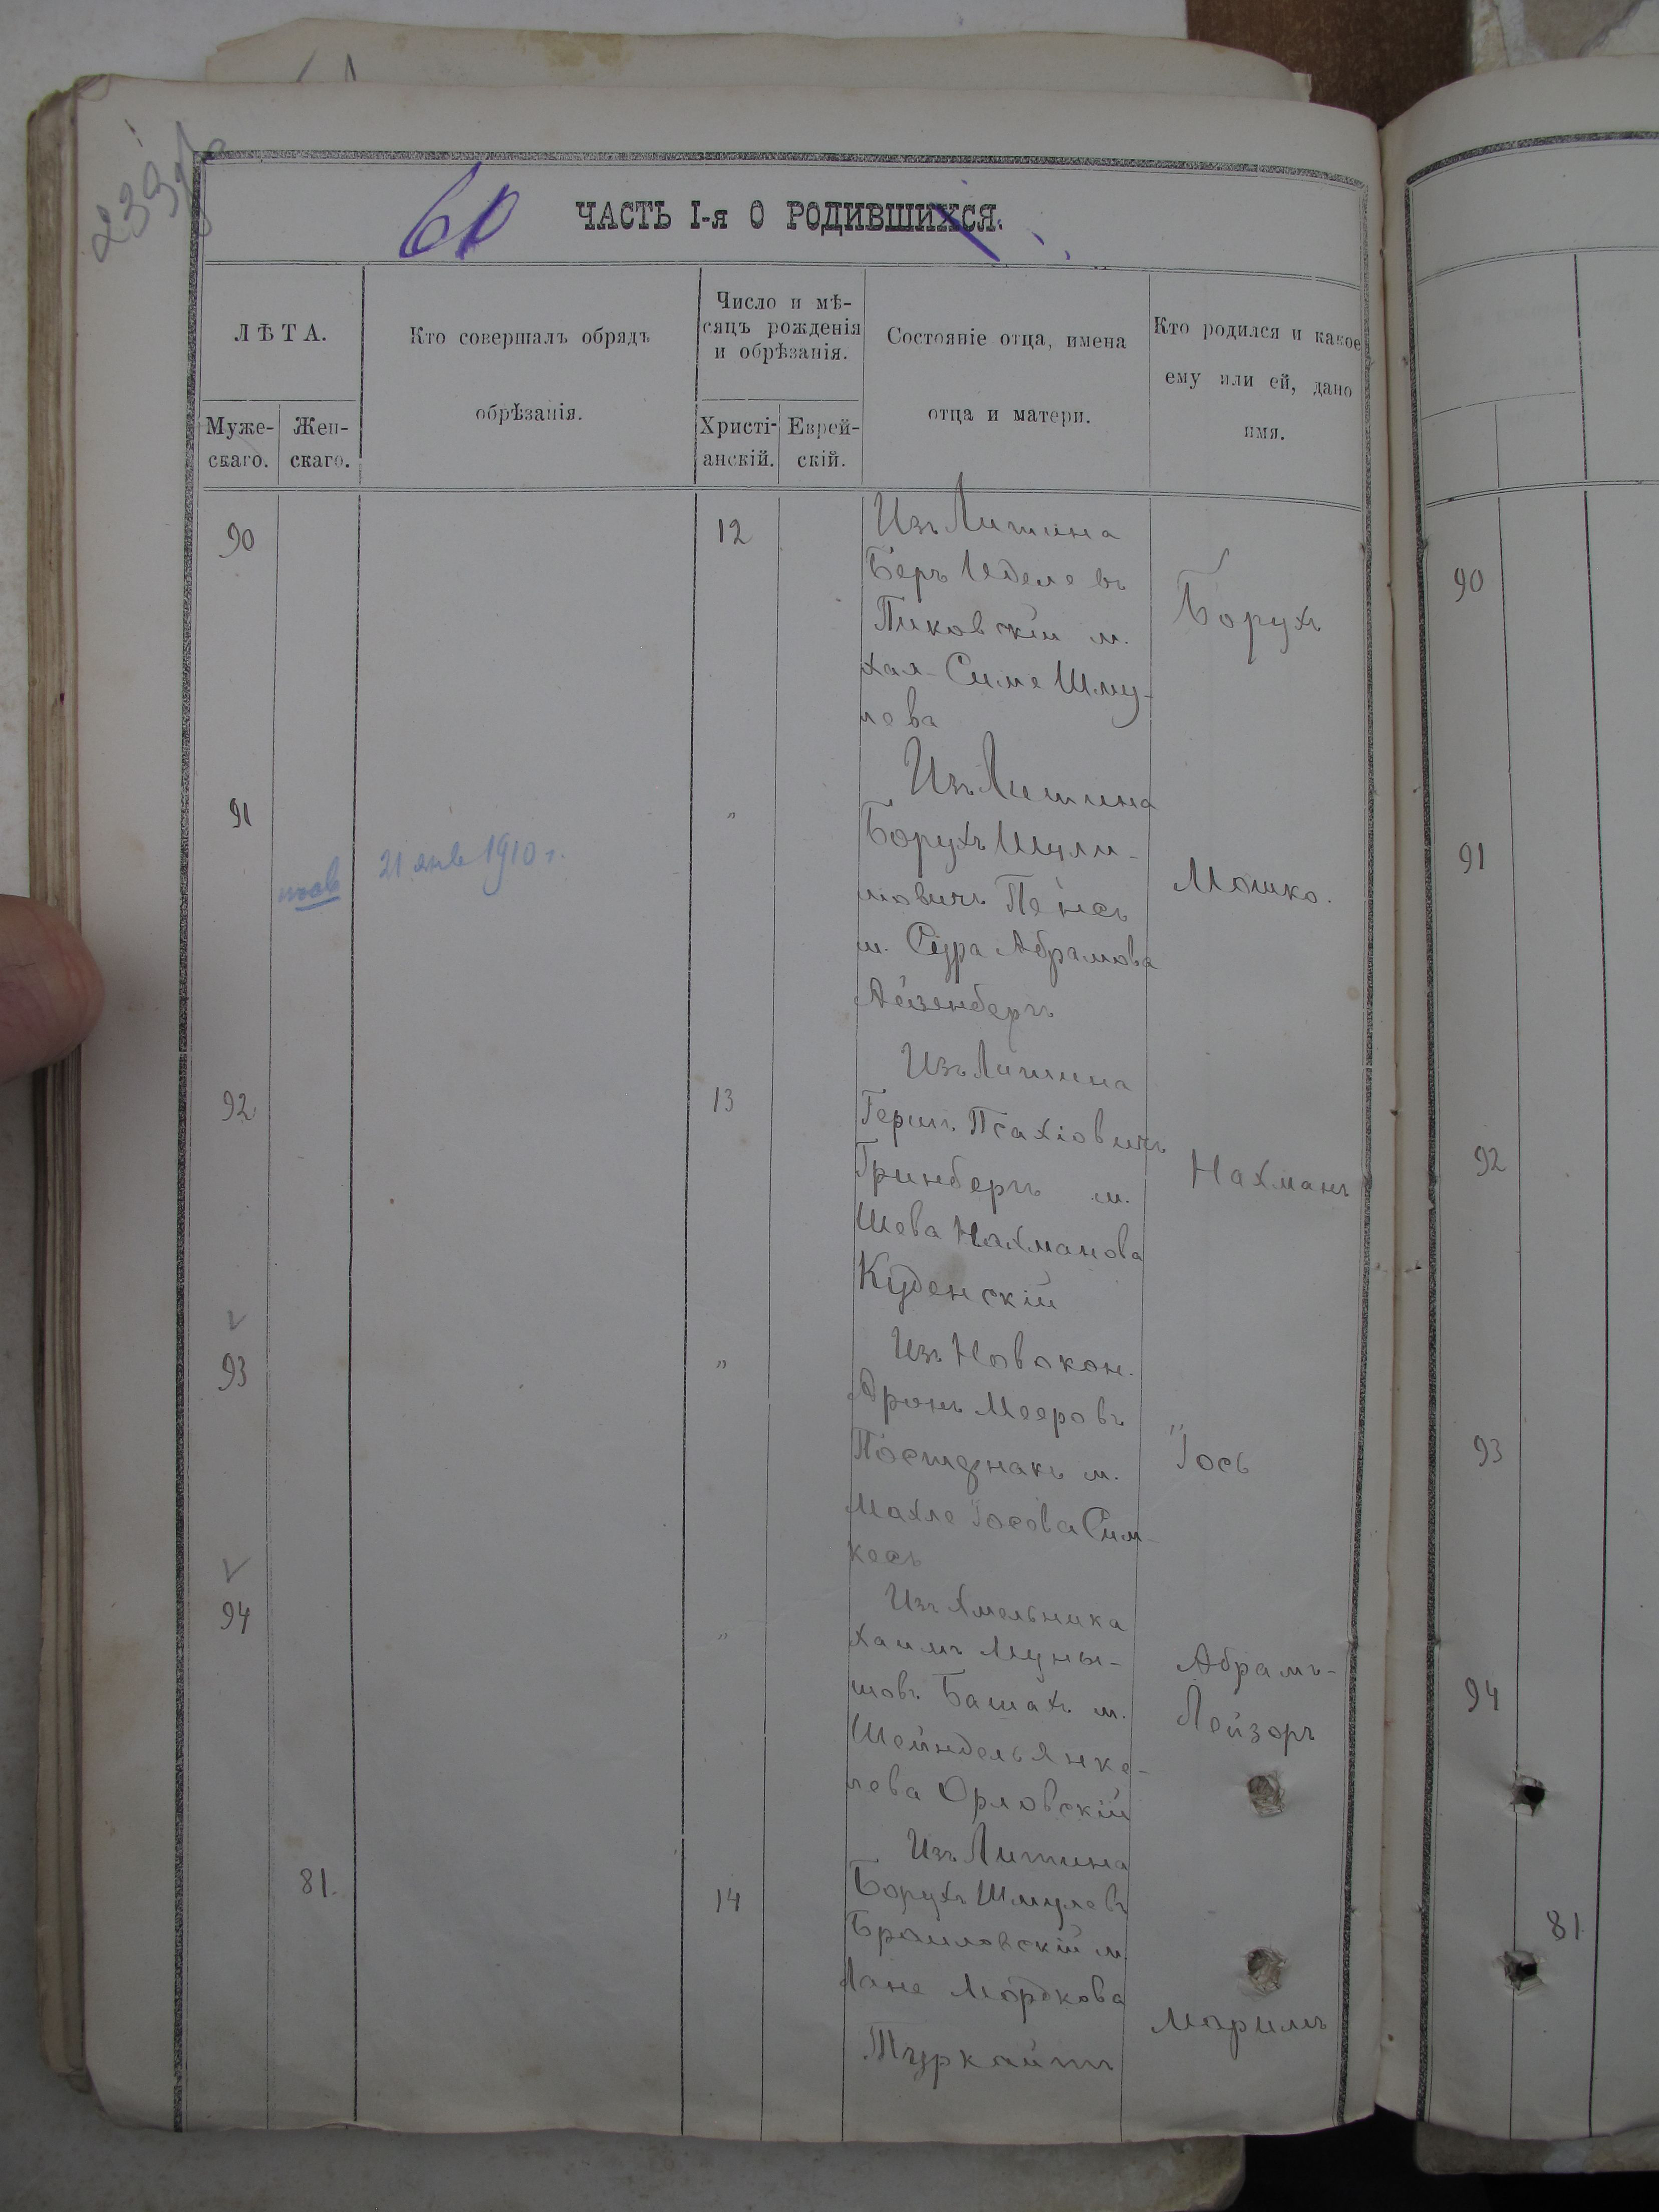 60
ЧАСТЬ I-я О РОДИВШИХСЯ.
ЛѢТА.
Муже-
скаго.
Жен-
скаго.
Кто совершалъ обрядъ
обрѣзанія.
Число и мѣ-
сяцъ рожденія
и обрѣзанія.
Христі-
анскій.
Еврей-
скій.
Состояніе отца, имена
отца и матери.
Кто родился и какое
ему или ей, дано
имя.
90
12
Изъ Литина
Беръ Иделевъ
Пиковскій м.
Хая-Симе Шму-
лева
Борухъ
90
91
"
21 янв 1910 г.
Изъ Литина
Борухъ Шули-
мовичъ Пенсъ
м. Сура Абрамова
Айзенбергъ
Мошко.
91
92
13
Изъ Литина
Гершъ Псахіовичъ
Гринбергъ м.
Шева Нахманова
Куденскій
Нахманъ
92
93
"
Изъ Новокон.
Аронъ Мееровъ
м.
Махле Іосова Сим-
кесъ
Іось
93
94
"
Изъ Хмельника
Хаимъ Муны-
шовъ Башахъ м.
Шейндель Янке-
лева Орловскій
Абрамъ-
Лейзоръ
94
81.
14
Изъ Литина
Борухъ Шмулевъ
Браиловскій м.
Хане Мордкова
Маримъ
81